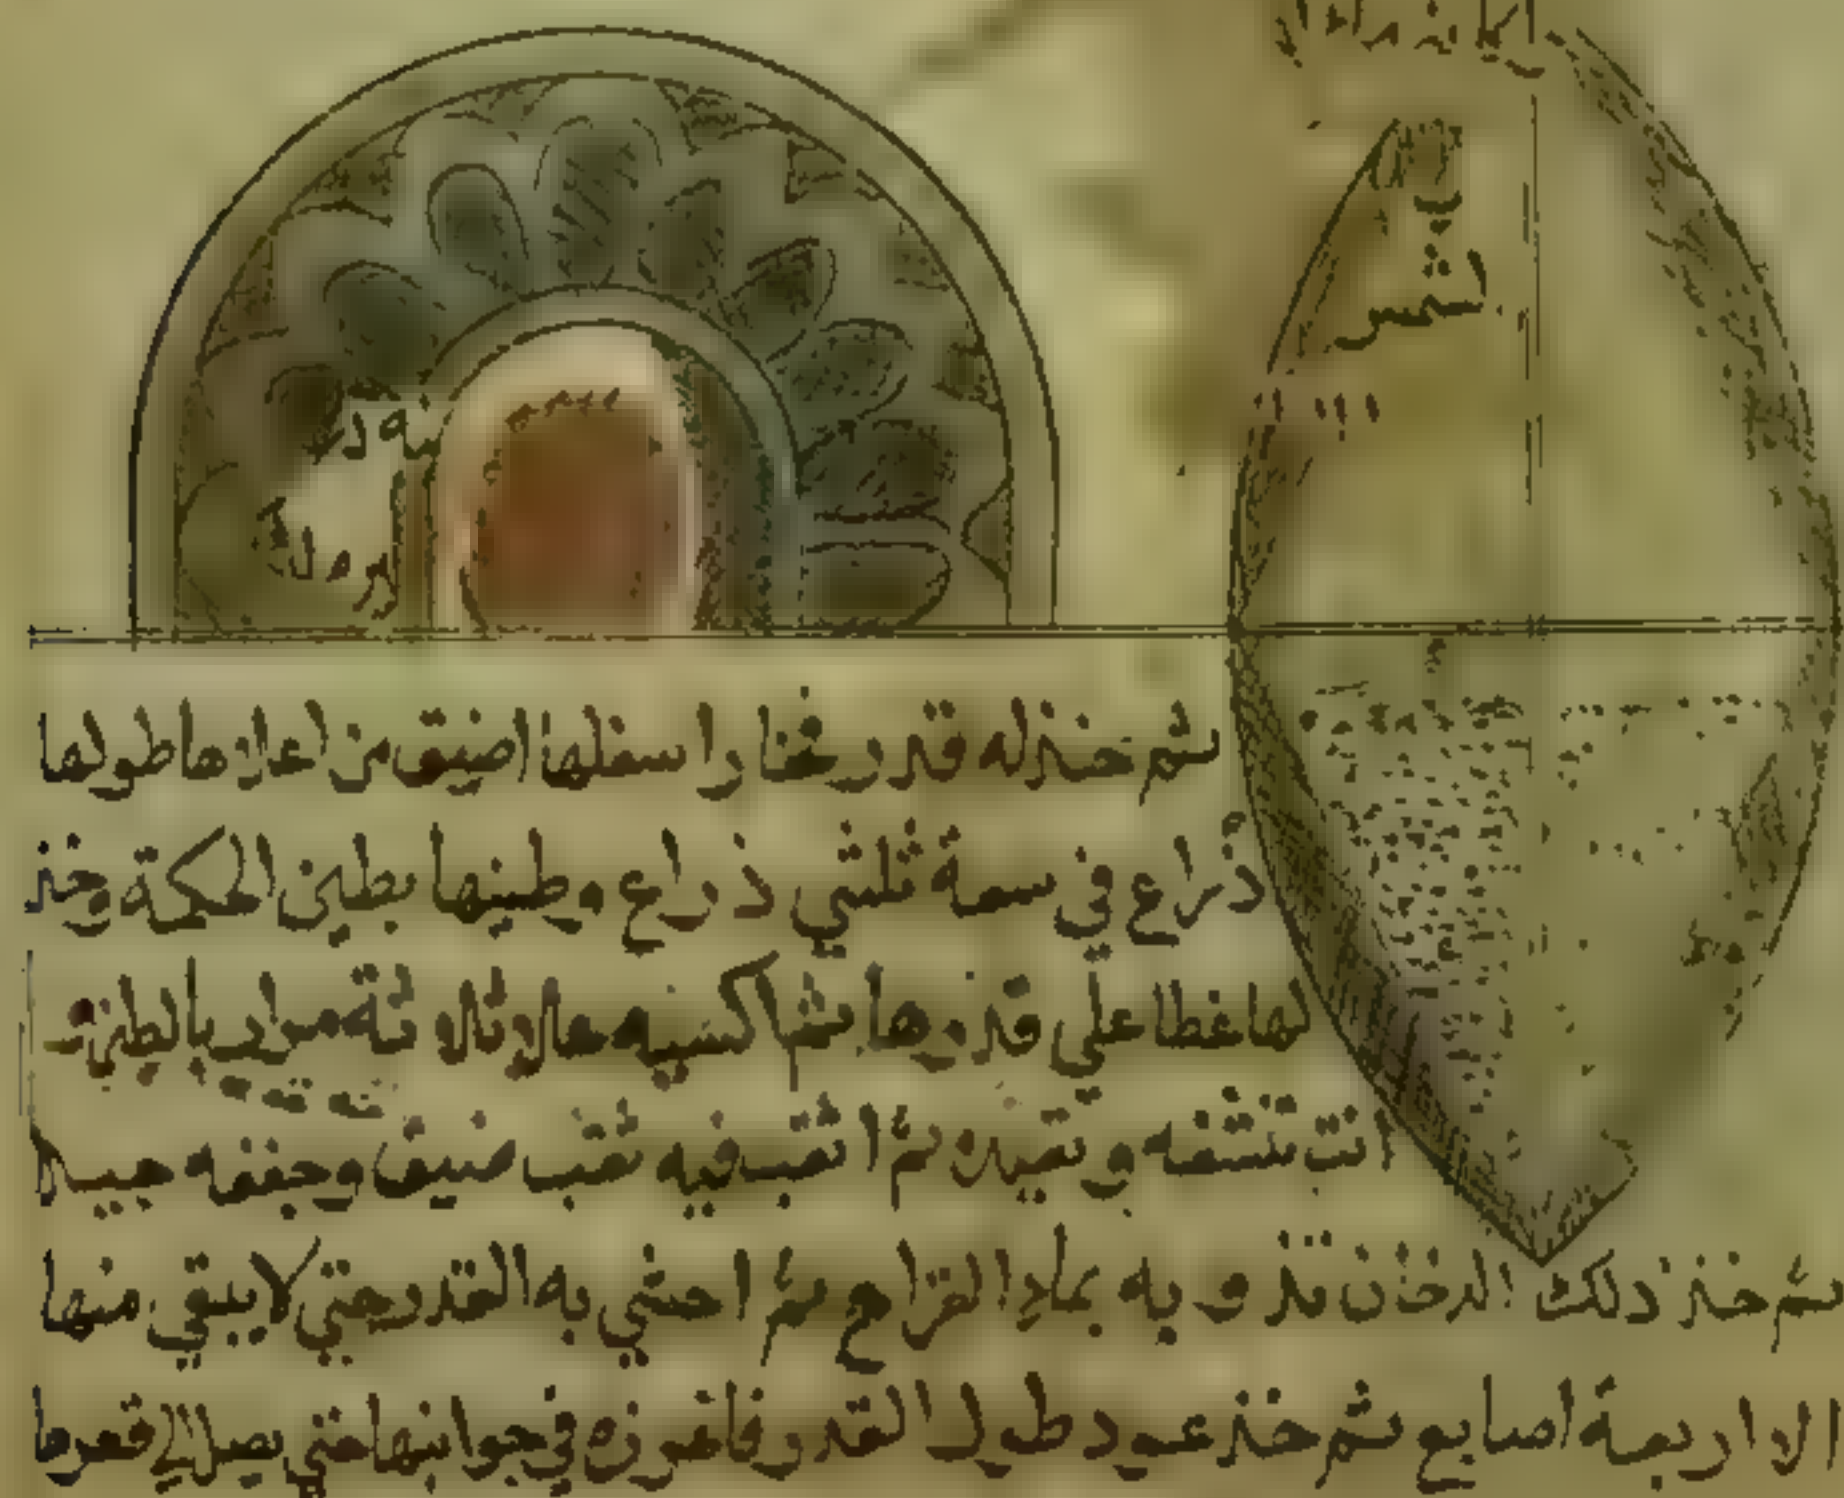 الشمس
ثم خذ له قدر فخار اسفلها اضيق من اعلاها طولها
ذراع في سعة ثلثي ذراع وطينها بطين الحكمة وخذ
لها غطا علي قدرها ثم اكسيه ثلاثة مرار بالطين
انت تنشفه ثم اثقب فيه ثقب ضيق وجففه جيدا
ثم خذ ذلك به بماء القراح ثم احشي به القدر حتي لا يبقي منها
الا اربعة اصابع ثم خذ عمود طول القدر فاغرزه في جوانبها حتي يصل الي قعرها